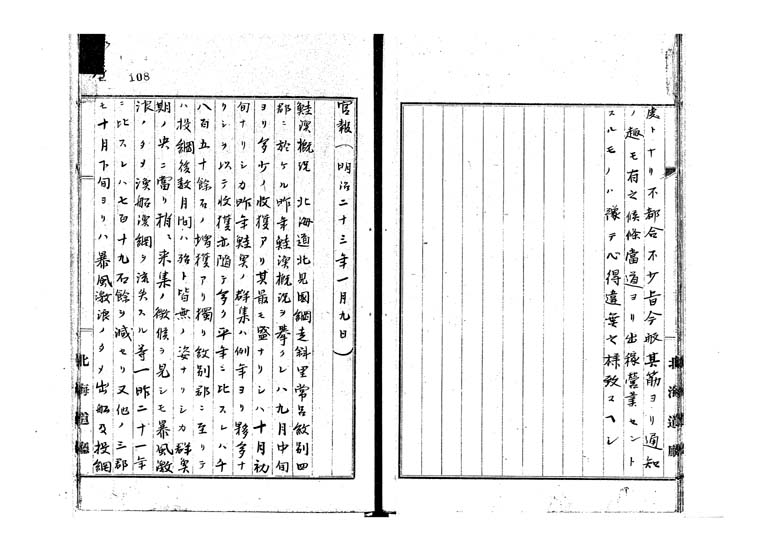 虔トナリ不都合不少旨今般其筋ヨリ通知
ノ趣モ有之候條當道ヨリ出稼營業セント
スルモノハ豫テ心得違無之樣致スヘシ
北海道廳
108
官報(明治二十三年一月九日)
鮭漁概況 北海道北見國網走斜里常呂紋別四
郡ニ於ケル昨年鮭漁概況ヲ擧クレハ九月中旬
ヨリ多少ノ收獲アリ其最モ盛ナリシハ十月初
旬ナリシカ昨年鮭魚ノ群集ハ例年ヨリ夥多ナ
リシヲ以テ收獲亦隨テ多ク平年ニ比スレハ千
八百五十餘石ノ增獲アリ獨リ紋別郡ニ至リテ
ハ投網後數月間ハ殆ト皆無ノ姿ナリシカ群奥
期ノ央ニ當リ稍、来集ノ徴候ヲ見シモ暴風激
浪ノタメ漁船漁網ヲ流失スル等一昨二十一年
ニ比スレハ七百十九石餘ヲ減セリ又他ノ三郡
モ十月下旬ヨリハ暴風激浪ノタメ出船及投網
北海道廳